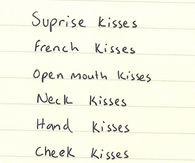 Suprise Kisses
French Kisses
Open mouth Kisses
Neck Kisses
Hand Kisses
Cheek Kisses